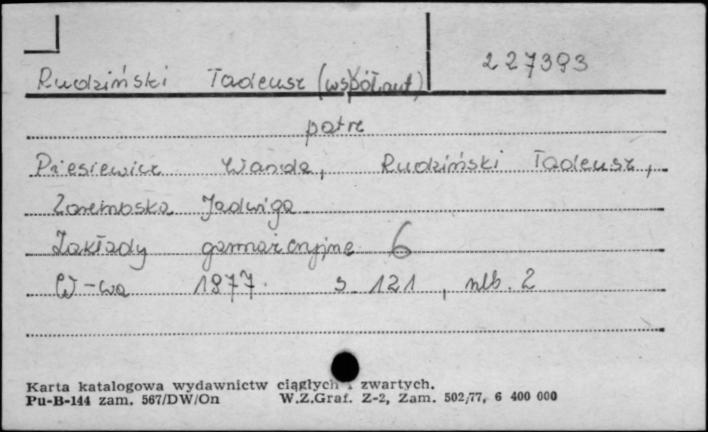 227393
Rudziński Tadeusz (współaut)
patrz
Piesiewicz Wanda, Rudziński Tadeusz,
Zarembska Jadwiga
Zakłady garmażeryjne 6
W-wa 1977. s. 121, nlb. 2
Karta katalogowa wydawnictw ciągłych i zwartych.
Pu-B-144 zam. 567/DW/On W.Z.Graf. Z-2, Zam. 502/77, 6 400 000